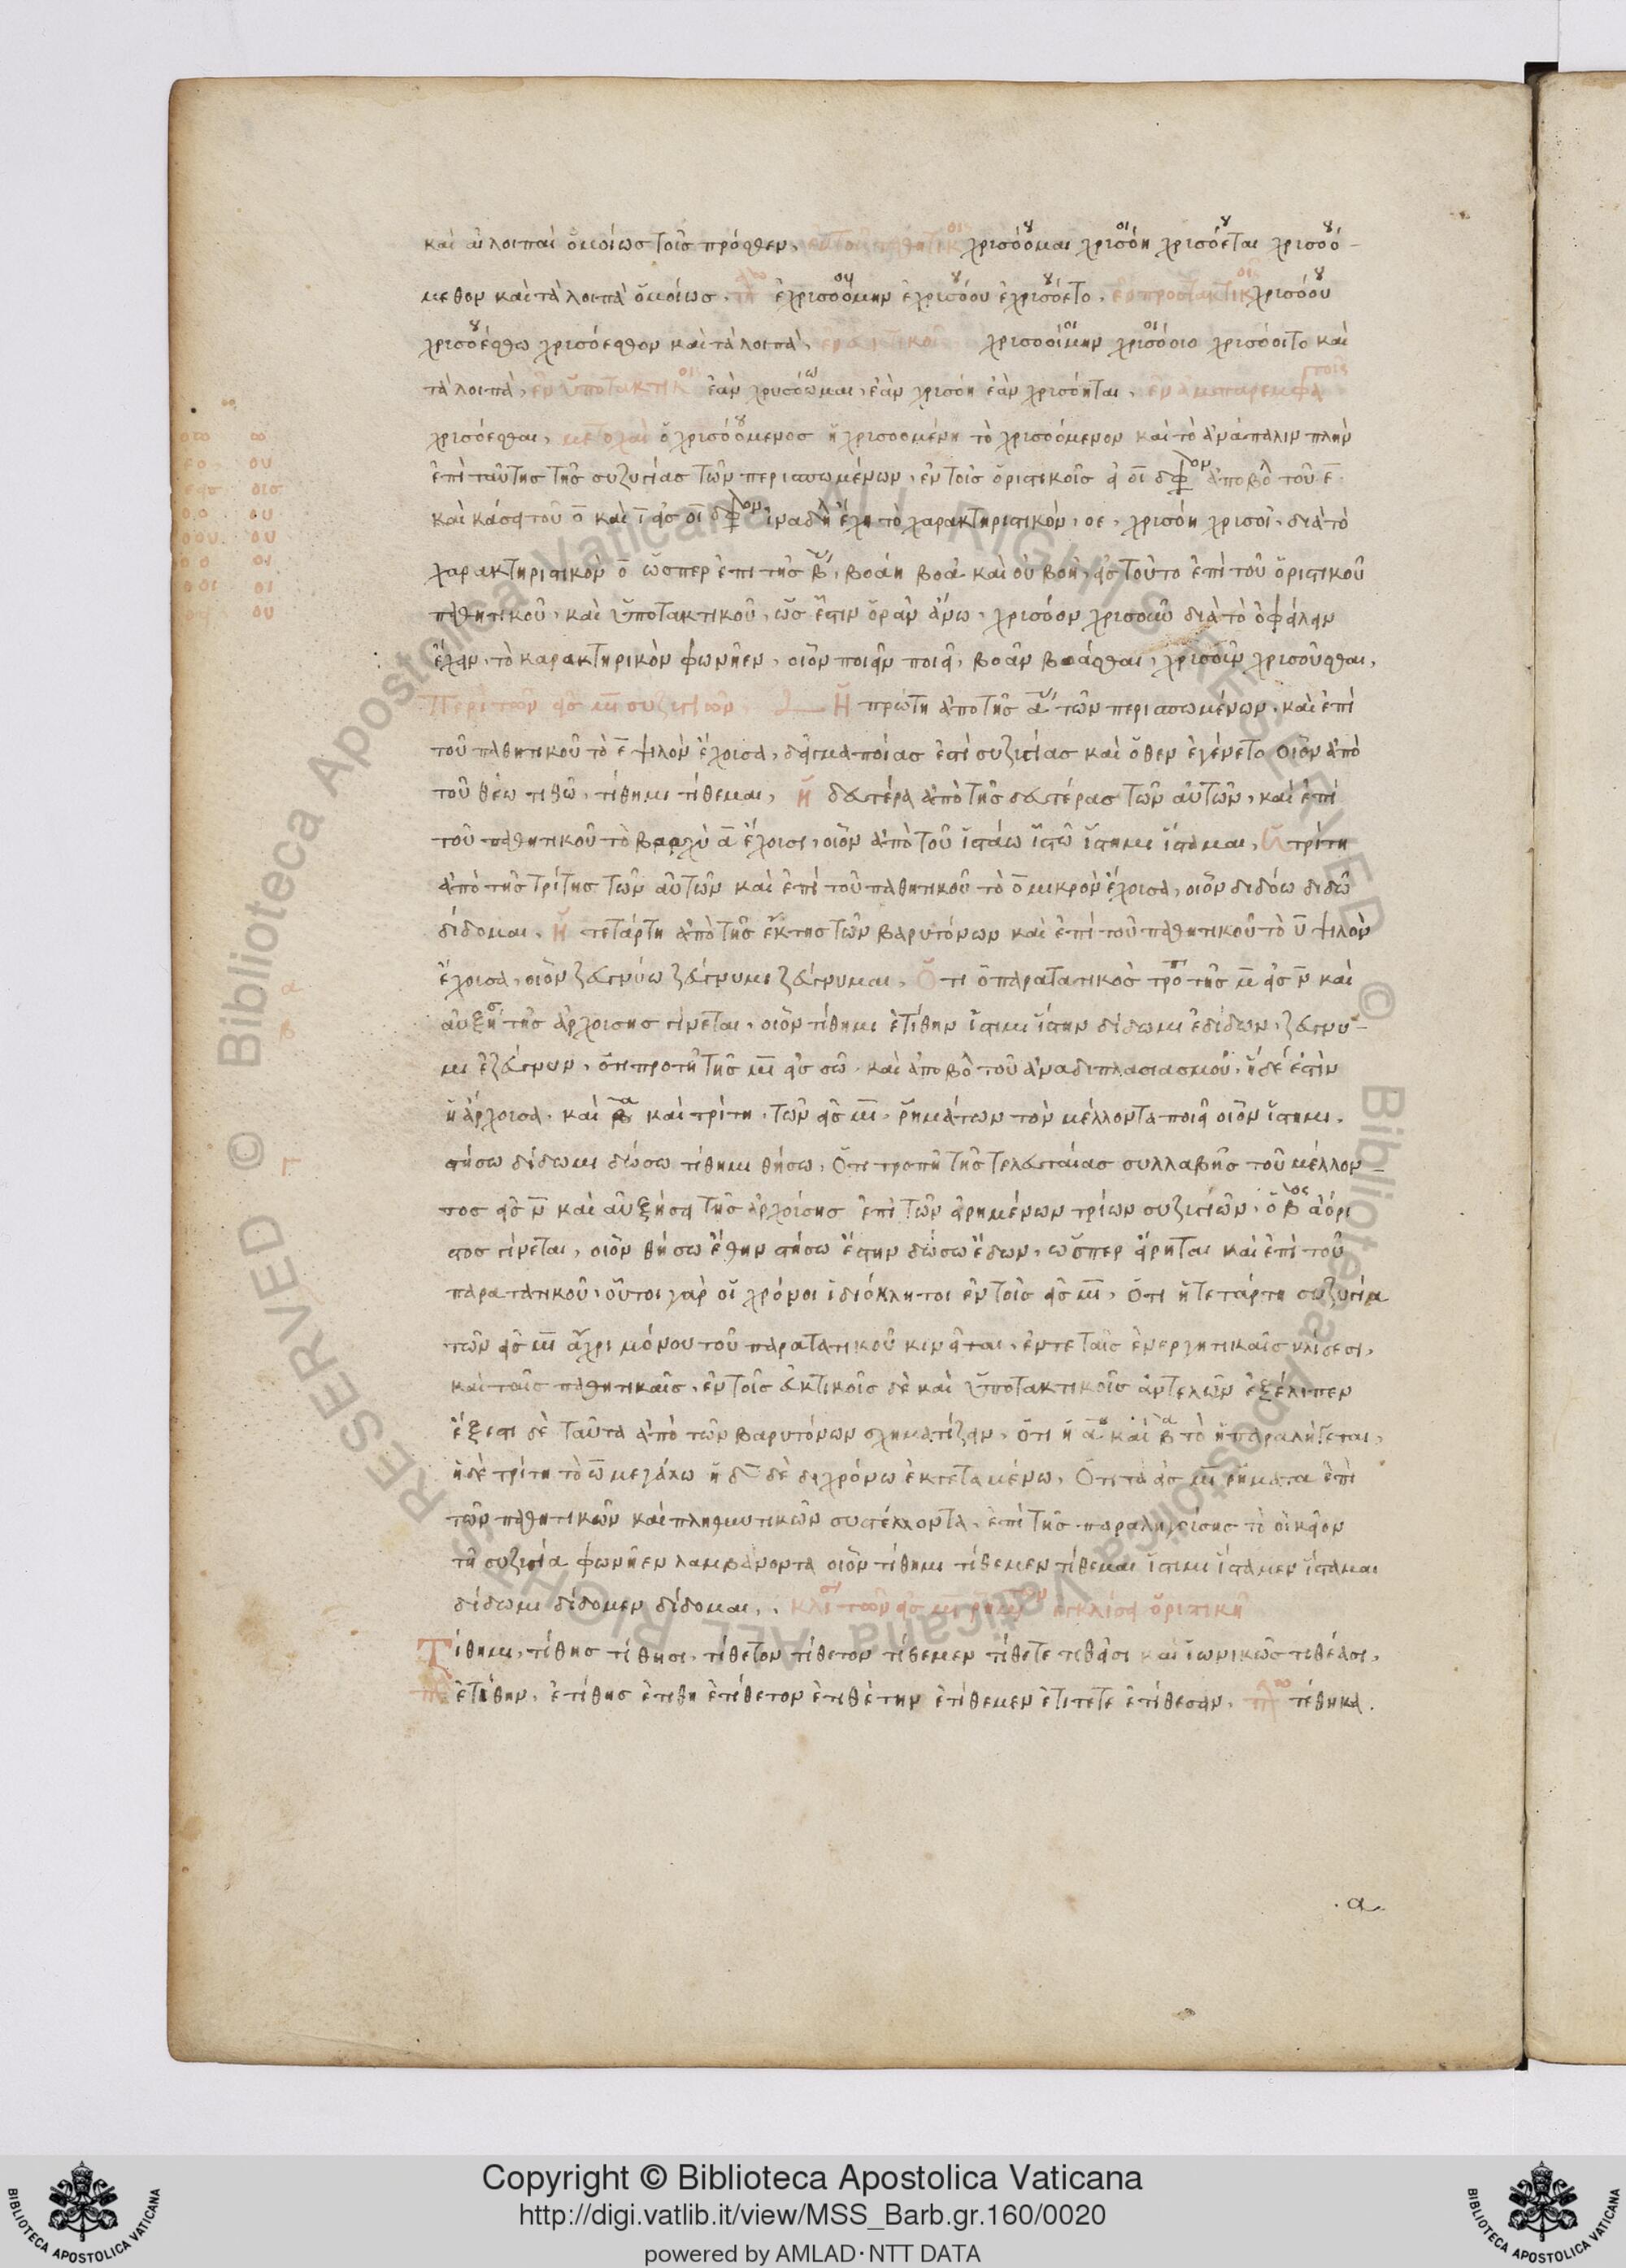 και αι λοιπαί ὁμοίως τοῖς πρόσθεν, χρισόομαι χρισόη χρισόεται χρισοό-
μεθον και τὰ λοιπὰ ὁμοίως. ἐχρισοόμην ἐχρισόου ἐχρισόετο. ἐν προστακτικοῖς χρισόου
χρισοέσθω χρισόεσθον και τὰ λοιπὰ, χρισοοίμην χρισόοιο χρισόοιτο και
τὰ λοιπὰ, ἐν ὑποτακτικοῖς ἐὰν χρυσόωμαι, ἐὰν χρισόη ἐὰν χρισόηται, ἐν ἀπαρεμφάτοις
χρισόεσθαι, μετοχαὶ ὁ χρισοόμενος ἡ χρισοομένη τὸ χρισοόμενον και τὸ ἀνάπαλιν πλὴν
ἐπὶ ταύτης τῆς συζυγίας τῶν περισπωμένων, ἐν τοῖς ὁριστικοῖς τοῦ ε
και το χαρακτηριστικόν, οε, χρισόη χρισοῖ, διὰ τὸ
χαρακτηριστικὸν ο ὥσπερ ἐπι τῆς β, βοάη βοᾶ και οὐ βοῆ, εἰς τοῦτο ἐπὶ τοῦ ὁριστικοῦ
παθητικοῦ, και ὑποτακτικοῦ, ὡς ἔστιν ὁρᾶν ἄνω, χρισόον χρισοῦν διὰ τὸ ὀφείλειν
ἔχειν, τὸ καρακτηρικὸν φωνῆεν, οἷον ποιεῖν ποιεῖ, βοᾶν βοάσθαι, χρισοῖν χρισοῦσθαι,
Περὶ τῶν εἰς μι συζιγιῶν. Ἡ πρώτη ἀπο τῆς α τῶν περισπωμένων, και ἐπὶ
τοῦ παθητικοῦ τὸ ε ψιλὸν ἔχοισα, δεῖγμα ποίας ἐστὶ συζιγίας και ὅθεν ἐγένετο οἷον ἀπὸ
τοῦ θέω τιθῶ, τίθημι τίθεμαι, ἡ δευτέρα ἀπὸ τῆς δευτέρας τῶν αὐτῶν, και ἐπὶ
τοῦ παθητικοῦ τὸ βραχὺ α ἔχοισα, οἷον ἀπὸ τοῦ ἱστάω ἱστῶ ἵστημι ἵσταμαι, ἡ τρίτη
ἀπὸ τῆς τρίτης τῶν αὐτῶν και ἐπὶ τοῦ παθητικοῦ τὸ ο μικρὸν ἔχοισα, οἷον διδόω διδῶ
δίδομαι. ἡ τετάρτη ἀπὸ τῆς ἕκτης τῶν βαρυτόνων και ἐπὶ τοῦ παθητικοῦ τὸ υ ψιλὸν
ἔχοισα, οἷον ζευγνύω ζεύγνυμι ζεύγνυμαι, Ὅτι ὁ παρατατικὸς τροπῇ τῆς μι εἰς ν και
αὐξήσει τῆς ἀρχοισης γίνεται, οἷον τίθημι ἐτίθην ἵστιμι ἵστην δίδωμι ἐδίδων, ζεύγνυ-
μι ἐζεύγνυν, ὅτι τροπῇ τῆς μι εἰς σω και ἀποβο τοῦ ἀναδιπλασιασμοῦ, ἥδέ ἐστὶν
ἡ ἄρχοισα, και β και τρίτη, τῶν εἰς μι, ῥημάτων τὸν μέλλοντα ποιεῖ οἷον ἵστημι.
στήσω δίδωμι δώσω τίθημι θήσω, Ὅτι τροπῇ τῆς τελευταίας συλλαβῆς τοῦ μέλλον-
τος εἰς ν και αὐξήσει τῆς ἀρχοίσης ἐπὶ τῶν εἰρημένων τρίων συζιγιῶν, ὁ βος ἀόρι
στος γίνεται, οἷον θήσω ἔθην στήσω ἔστην δώσω ἔδων, ὥσπερ εἴρηται και ἐπὶ τοῦ
παρατατικοῦ, οὗτοι γὰρ οἱ χρόνοι ἰδιόκλητοι ἐν τοῖς εἰς μι, Ὅτι ἡ τετάρτη συζυγία
τῶν εἰς μι ἄχρι μόνου τοῦ παρατατικοῦ κινεῖται, ἐν τε ταῖς ἐνεργητικαῖς κλίσεσι,
και ταῖς παθητικαῖς, ἐν τοῖς εὐκτικοῖς δὲ και ὑποτακτικοῖς ἀντελῶν ἐξέλιπεν
ἔξεστι δὲ ταῦτα ἀπὸ τῶν βαρυτόνων σχηματίζειν, ὅτι ἡ α και β τὸ η παραλήγεται,
ἡ δὲ τρίτη τὸ ω μεγάλω ἡ δ δὲ διχρόνω ἐκτεταμένω, Ὅτι τὰ εἰς μι ῥήματα ἐπὶ
τῶν παθητικῶν και πληθυντικῶν συστέλλοντα, ἐπὶ τῆς παραληγούσης τὸ οἰκεῖον
τῆ συζιγία φωνῆεν λαμβάνοντα οἷον τίθημι τίθεμεν τίθεμαι ἵστιμι ἵσταμεν ἵσταμαι
δίδωμι δίδομεν δίδομαι, . κλίσις τῶν εἰς μι ῥημάτων ἐγκλίσει ὁριστικῆ
Τίθημι, τίθης τίθησι, τίθετον τίθετον τίθεμεν τίθετε τιθεῖσι και ἰωνικῶς τιθέασι,
ἐτίθην, ἐτίθης ἐτίθη ἐτίθετον ἐτιθέτην ἐτίθεμεν ἐτίτετε ἐτίθεσαν, τέθηκα.
. α
Copyright © Biblioteca Apostolica Vaticana
http://digi.vatlib.it/view/MSS_Barb.gr.160/0020
powered by AMLAD·NTT DATA